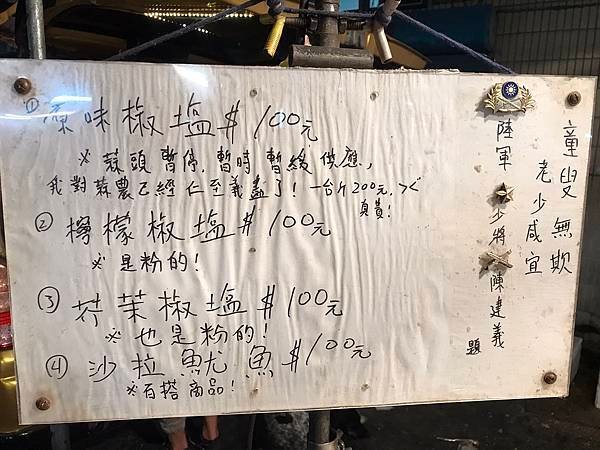 ①原味椒塩$100元
※蒜頭暫停,暫時暫緩供應,
我對蒜農已經仁至義盡了!一台斤200元,><
真貴!
②檸檬椒塩$100元
※是粉的!
③芥茉椒塩$100元
※也是粉的!
④沙拉魷魚$100元
※百搭商品!
童叟無欺
老少咸宜
陸軍少將陳建義
題